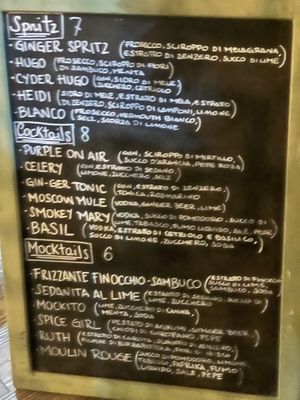 Spritz 7
- GINGER SPRITZ (PROSECCO, SCIROPPO DI MELAGRANA,
ESTRATTO DI ZENZERO, SUCCO DI LIME)
- HUGO (PROSECCO, SCIROPPO DI FIORI
DI SAMBUCO, MENTA)
- CYDER HUGO (GIN, SIDRO DI MELE,
ZUCCHERO, CETRIOLO)
- HEIDI (SIDRO DI MELE, ESTRATTO DI MELA, ESTRATTO
DI ZENZERO, SCIROPPO DI LAMPONI, LIMONE)
- BLANCO (PROSECCO, VERMOUTH BIANCO,
SELZ, SCORZA DI LIMONE)
Cocktails 8
- PURPLE ON AIR (GIN, SCIROPPO DI MIRTILLO,
SUCCO D'ARANCIA, PEPE ROSA)
- CELERY (GIN, ESTRATTO DI SEDANO,
LIMONE, ZUCCHERO, SELZ)
- GIN-GER TONIC (GIN, ESTRATTO DI ZENZERO,
TONICA, ROSMARINO)
- MOSCOW MULE (VODKA, GINGER BEER, LIME)
- SMOKEY MARY (VODKA, SUCCO DI POMODORO, SUCCO DI
LIME, TABASCO, FUMO LIQUIDO, SALE, PEPE)
- BASIL (VODKA, ESTRATTO DI CETRIOLO E BASILICO,
SUCCO DI LIMONE, ZUCCHERO, SODA)
Mocktails 6
- FRIZZANTE FINOCCHIO-SAMBUCO (ESTRATTO DI FINOCCHIO
SUCCO DI LIME,
SAMBUCO, SODA
- SEDANITA AL LIME (ESTRATTO DI SEDANO, SUCCO DI
LIME, ZUCCHERO)
- MOCKITO (LIME, ZUCCHERO DI CANNA,
MENTA, SODA)
- SPICE GIRL (PESTATO DI AGRUMI, GINGER BEER,
CHIODI DI GAROFANO, PEPE)
- RUTH (ESTRATTO DI CAROTA,
DI BARBABIETOLA
- MOULIN ROUGE (SUCCO DI POMODORO, LIME,
TABASCO, PAPRIKA, FUMO
LIQUIDO, SALE, PEPE